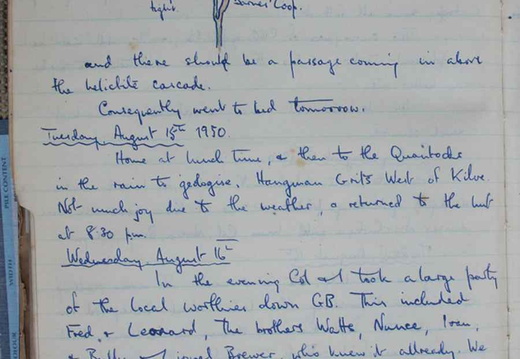 tight. Barnes' Loop.
and there should be a passage coming in above
the helictite cascade.
Consequently went to bed tomorrow.
Tuesday August 15th 1950.
Home at lunch time, & then to the Quantocks
in the rain to geologise. Hangman Grits West of Kilve.
Not much joy due to the weather, & returned to the hut
at 8.30 pm.
Wednesday August 16th
In the evening Col & I took a large party
of the local worthies down GB. This included
Fred, & Leonard, the brothers Watts, Nunce,
& joined Brewer, who knew it already. We